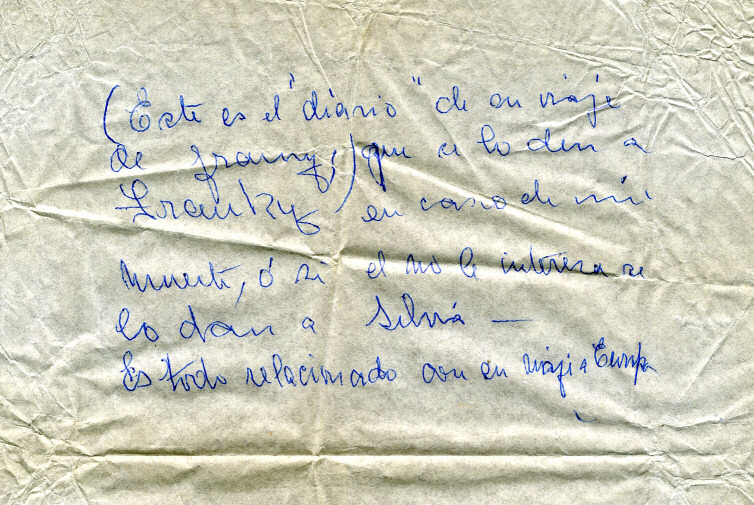 (Este es el "diario" de su viaje
de Franz,) que se lo den a
Franky en caso de mi
muerte, ó si el no le interesa se
lo dan a Silvia —
Es todo relacionado con su viaje a Europa